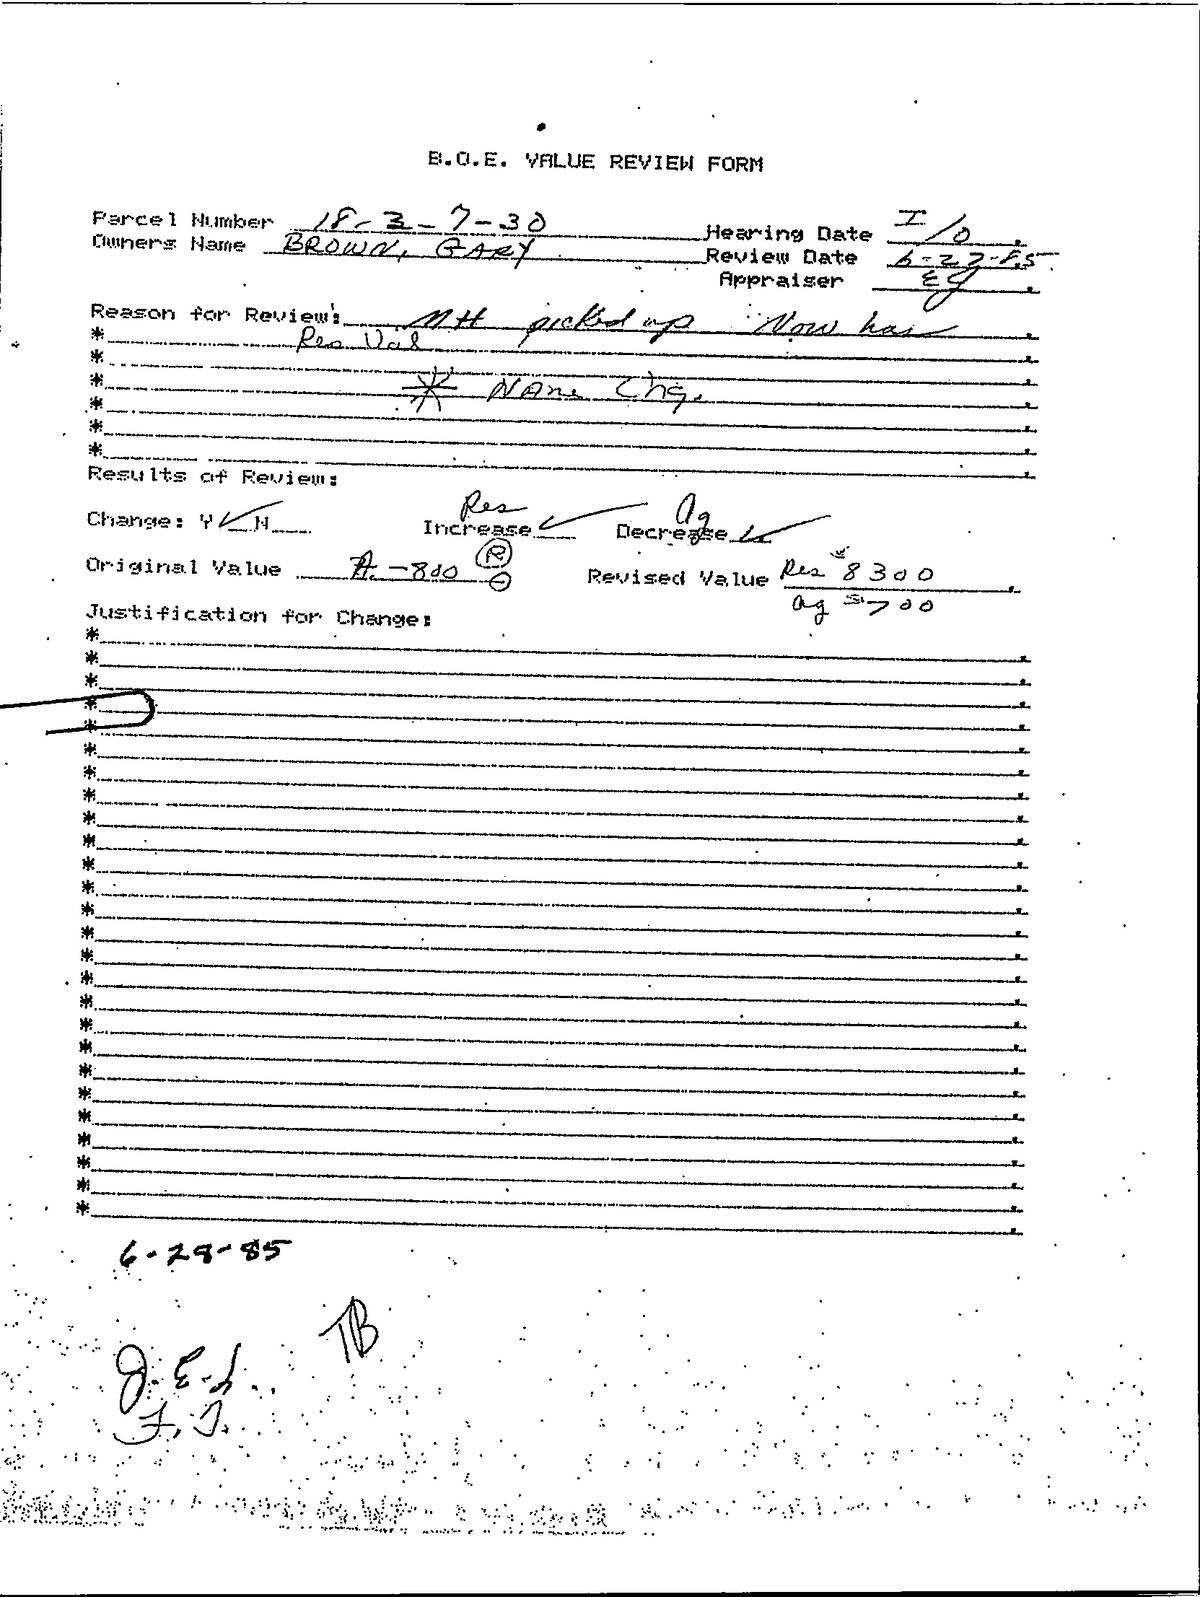 B.O.E. VALUE REVIEW FORM
Parcel Number 18-3-7-30
Hearing Date I/O.
Owners Name BROWN, GARY
Review Date 6-27-85
Appraiser EG.
Reason for Review: MH picked up Now has.
* Res Val.
*.
* * Name Chg..
*.
*.
*.
Results of Review:
Change: Y ✓ N Res Increase ✓ Ag Decrease ✓
Original Value A-800 R-0 Revised Value Res $8300.
Ag $700
Justification for Change:
*.
*.
*.
*.
*.
*.
*.
*.
*.
*.
*.
*.
*.
*.
*.
*.
*.
*.
*.
*.
*.
*.
*.
*.
*.
*.
6-28-85
TB
J.E.L.
F.T.